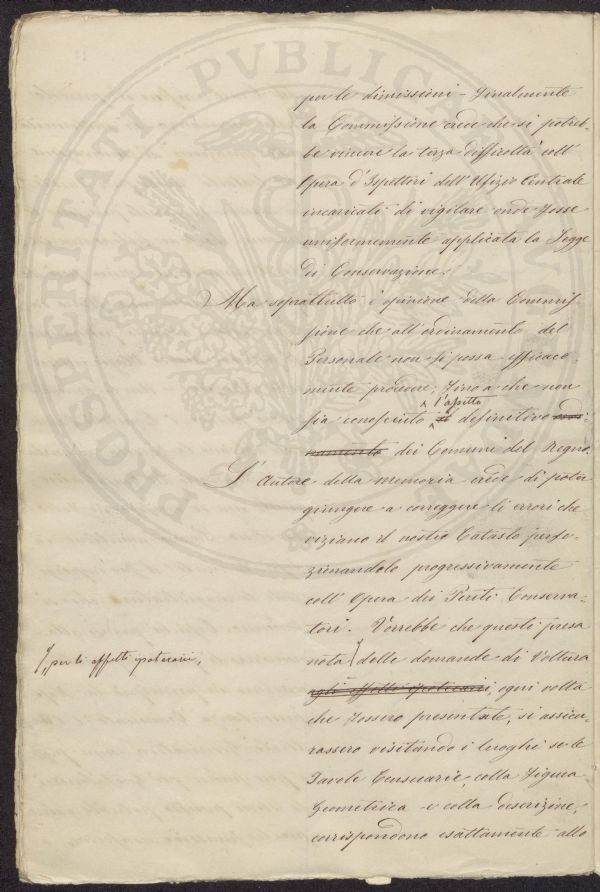 PROSPERITATI PVBLICAE
per le dimissioni – Finalmente
la Commissione crede che si potreb-
be vincere la terza difficoltà coll'
Opera d'Ispettori dell'Ufizio Centrale
incaricati di vigilare onde fosse
uniformemente applicata la Legge
di Conservazione.
Ma soprattutto è opinione della Commis-
sione che all'ordinamento del
Personale non si possa efficace-
mente procedere, fino a che non
l'assetto
sia conosciuto il definitivo ordi-
namento dei Comuni del Regno.
L'Autore della memoria crede di poter
giungere a correggere li errori che
viziano il nostro Catasto perfe-
zionandolo progressivamente
coll'Opera dei Periti Conserva-
tori. Vorrebbe che questi presa
nota delle domande di Voltura
per li effetti ipotecarii,
agli effetti ipotecarii, ogni volta
che fossero presentate, si assicu-
rassero visitando i luoghi se le
Tavole Censuarie, colla Figura
Geometrica e colla descrizione,
corrispondono esattamente allo